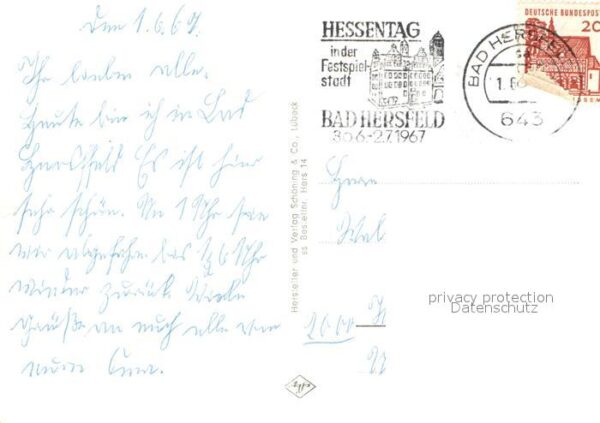 den 1.6.67.
Ihr lieben alle.
Heute bin ich in Bad
Hersfeld Es ist hier
sehr schön. Um 1 Uhr sin
wir abgefahren bis ½6 Uhr
wieder zurück. Viele
Grüße an euch alle von
eurer
HESSENTAG
in der
Festspiel-
stadt
BAD HERSFELD
30.6-2.7.1967
BAD HERSFEL
1.6
643
DEUTSCHE BUNDESPOST
20
Hersteller und Verlag Schöning & Co., Lübeck
ss Bestellnr. Hers 14
privacy protection
Datenschutz